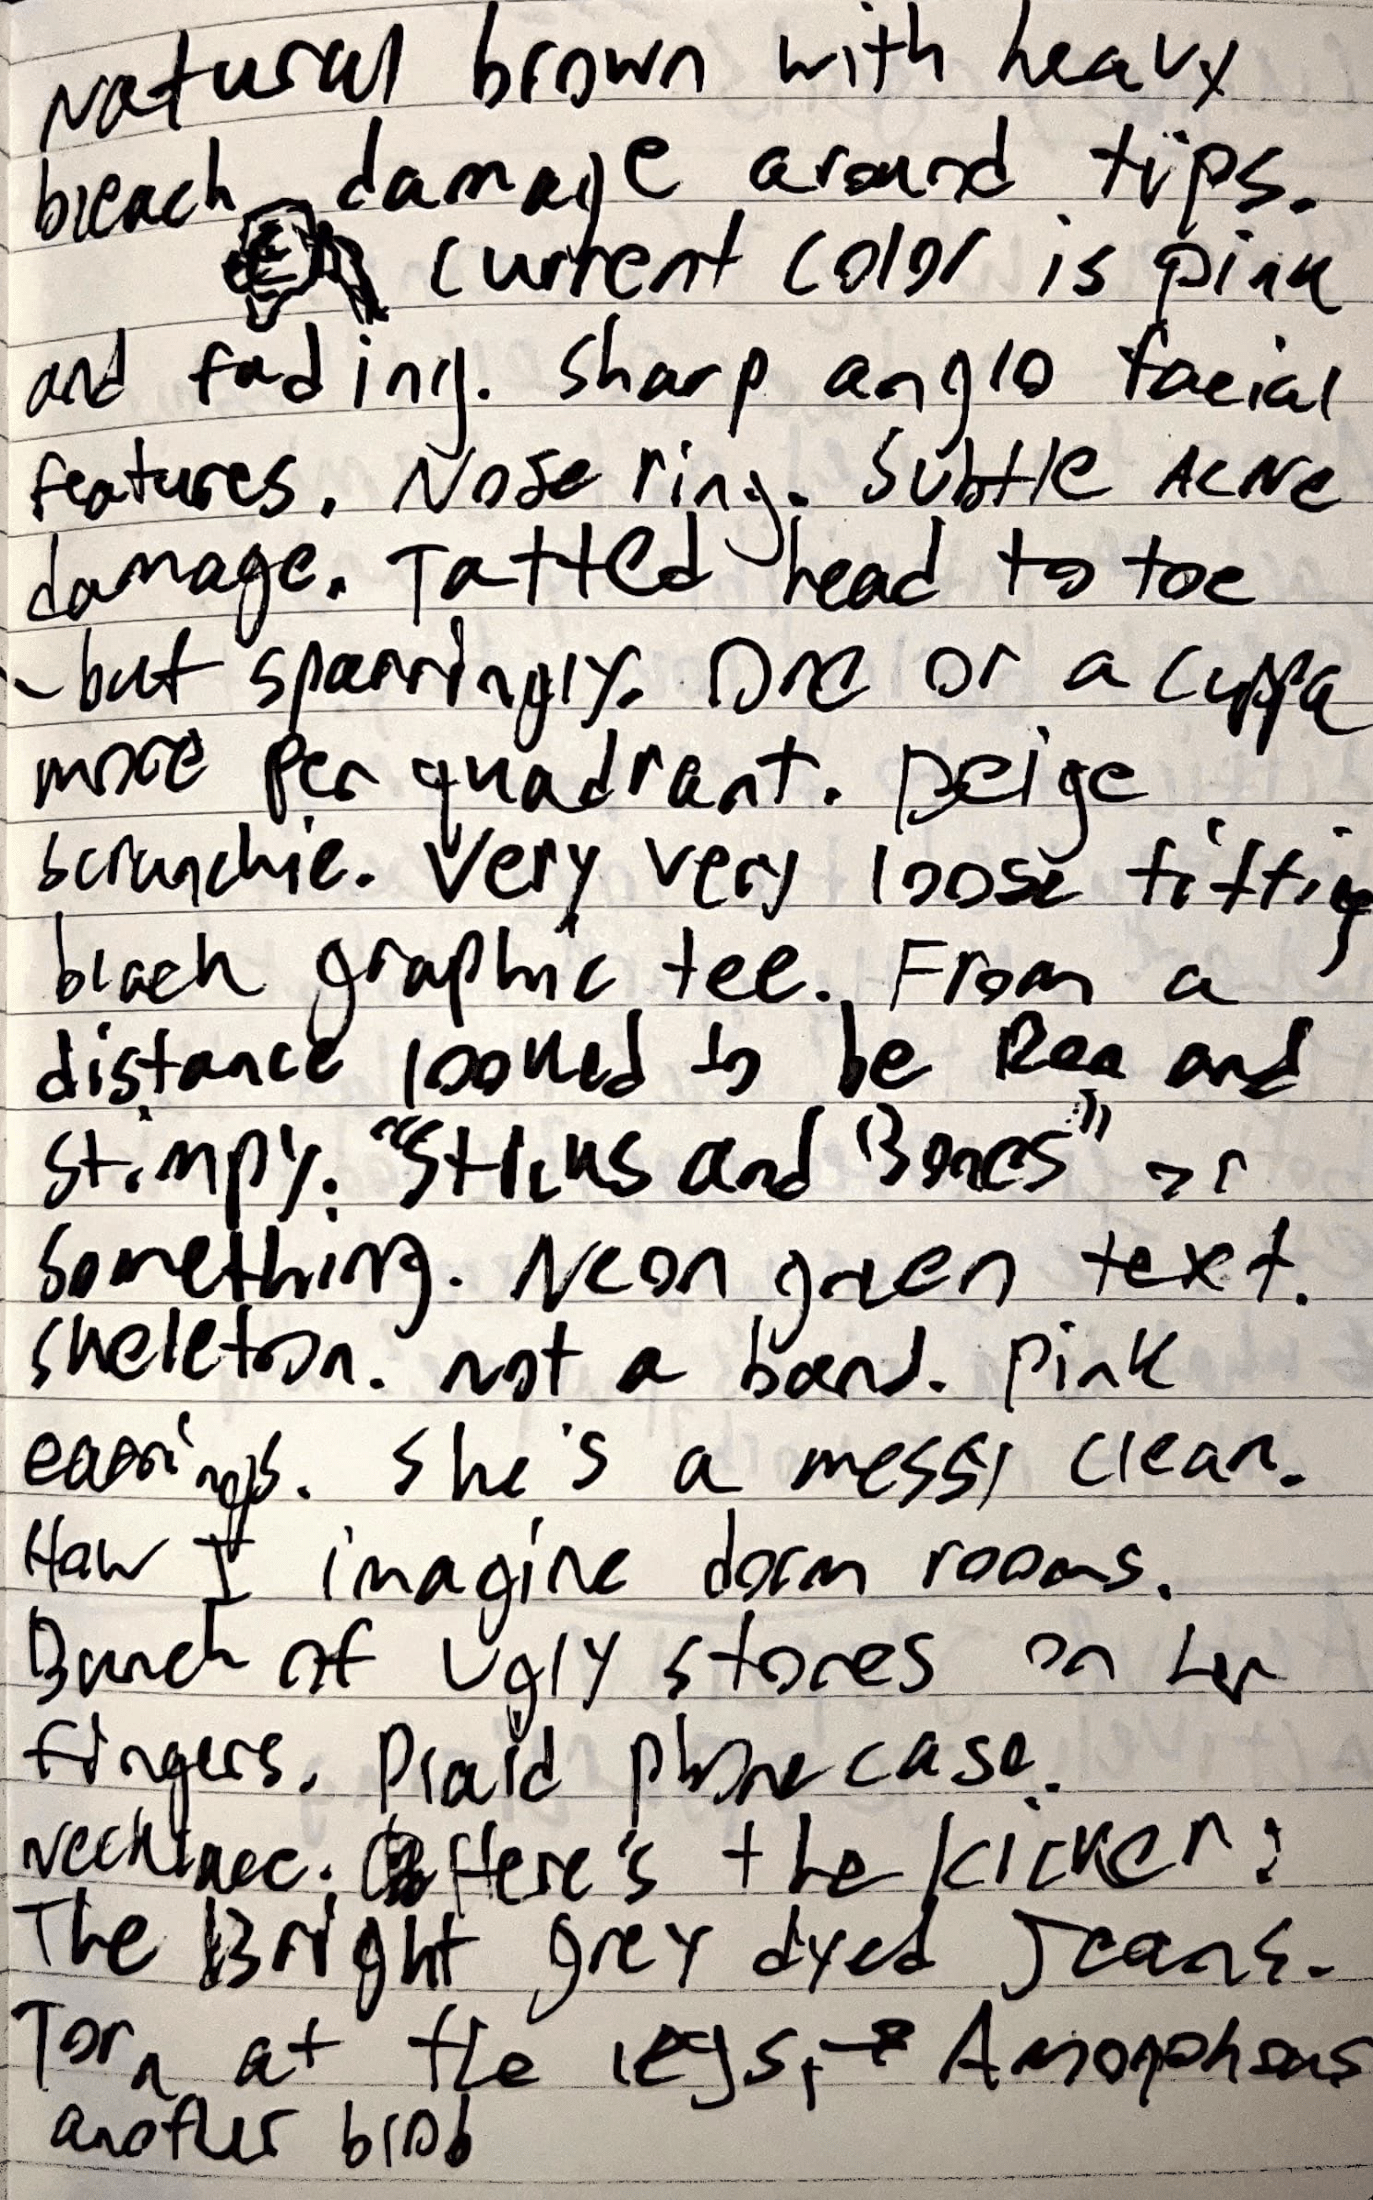 Natural brown with heavy
bleach damage around tips.
current color is pink
and fading. Sharp anglo facial
features. Nose ring. Subtle Acne
damage. Tatted head to toe
- but sparringly. One or a cuppa
more per quadrant. Beige
scrunchie. Very very loose fitting
black graphic tee. From a
distance looked to be Ren and
Stimpy. "Sticks and Bones" or
something. Neon green text.
skeleton. not a band. Pink
earrings. She's a messy clean.
How I imagine dorm rooms.
Bunch of Ugly stones on her
fingers. Plaid phone case.
Necklace. Here's the kicker:
The Bright grey dyed Jeans.
Torn at the legs, → Amorphous
another blob